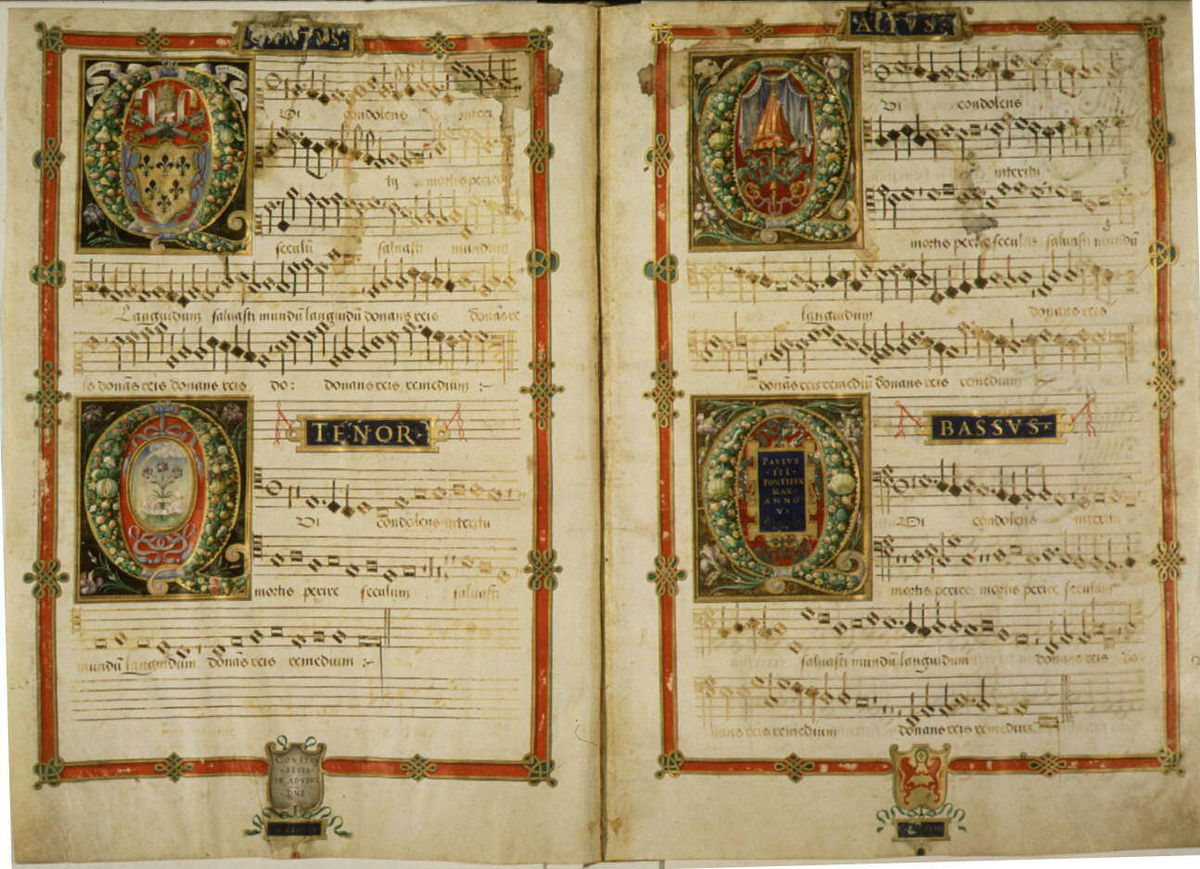 CANTVS.
Di condolens interi
tu mortis perire
seculũ saluasti mundum
Languidum saluasti mundũ languidũ donans reis donãs re
is donãs reis donans reis do: donans reis remedium :-
TENOR.
Di condolens interitu
mortis perire seculum saluasti
mundũ languidum donãs reis remedium :-
ALTVS.
Di condolens
interitu
mortis perire seculũ saluasti mundũ
languidum donans reis
donãs reis remediũ donans reis remedium
PAVLVS
III
PONTIFEX
MAX
ANNO
V
BASSVS
Di condolens interitu
mortis perire mortis perire seculum
saluasti mundũ languidum donans reis do
nans reis remedium donans reis remedium.